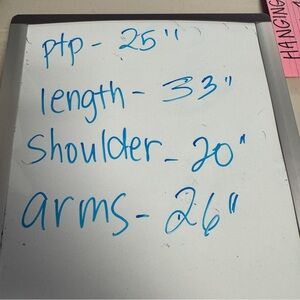 ptp - 25"
length - 33"
Shoulder - 20"
arms - 26"
HANGING